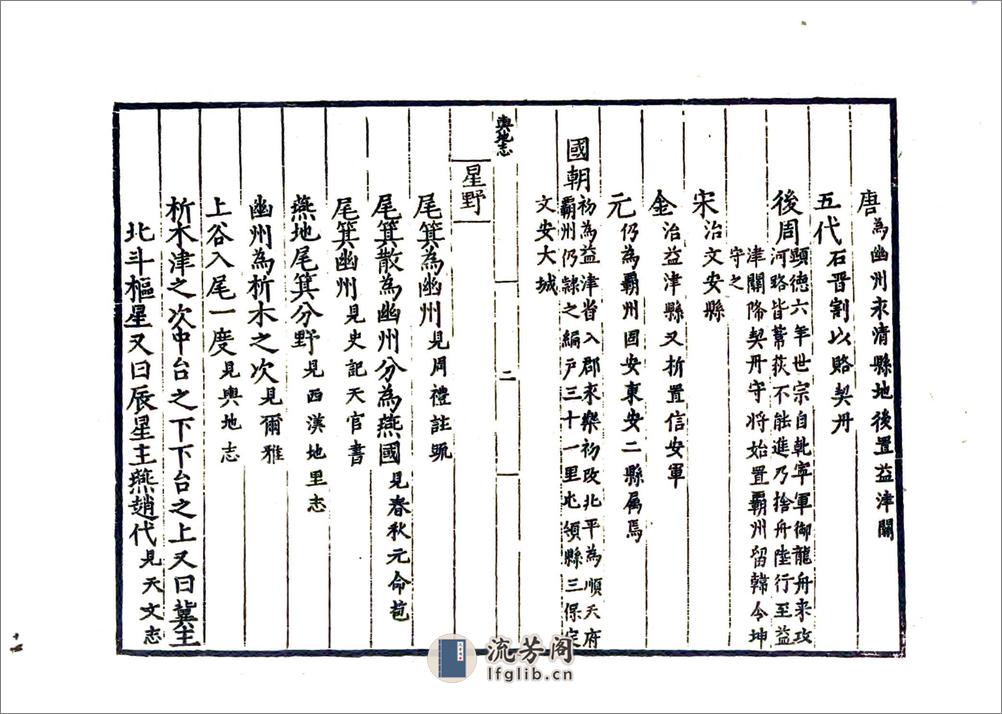 唐為幽州永清縣地後置益津關
五代石晋割以賂契丹
後周顯德六年世宗自乾寧軍御龍舟来攻
河路皆葦荻不能進乃捨舟陸行至益
津關降契丹守将始置霸州留韓令坤
守之
宋治文安縣
金治益津縣又析置信安軍
元仍為霸州固安東安二縣属焉
國朝初為益津省入郡永樂初改北平為順天府
霸州仍隷之編戶三十一里屯領縣三保定
文安大城
輿地志
二
星野
尾箕為幽州見周禮註䟽
尾箕散為幽州分為燕國見春秋元命苞
尾箕幽州見史記天官書
燕地尾箕分野見西漢地里志
幽州為析木之次見爾雅
上谷入尾一度見輿地志
析木津之次中台之下下台之上又曰冀主
北斗樞星又曰辰星主燕趙代見天文志
流芳阁
lfglib.cn